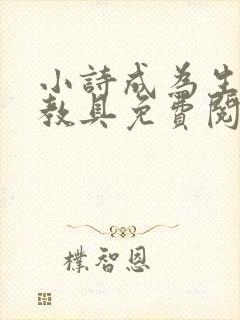 小詩成為生
教具免費閱
樸智恩